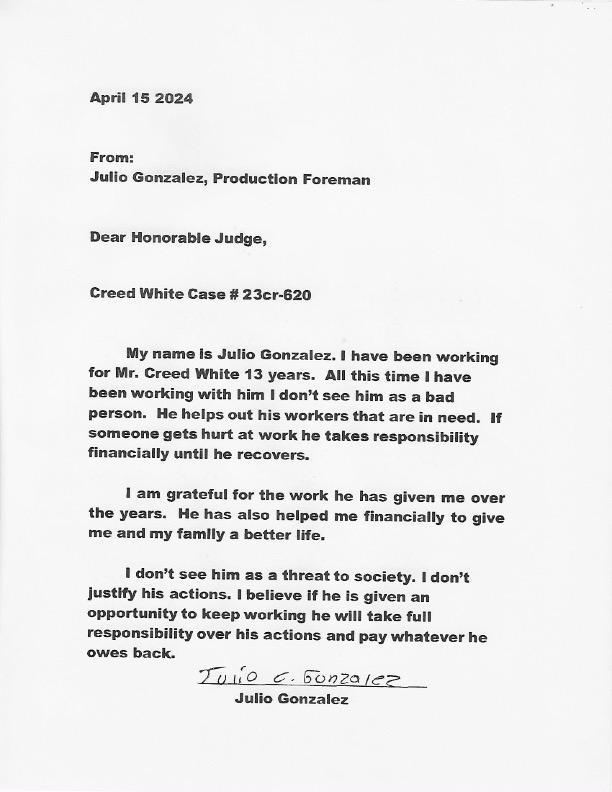 April 15 2024
From:
Julio Gonzalez, Production Foreman
Dear Honorable Judge,
Creed White Case # 23cr-620
My name is Julio Gonzalez. I have been working
for Mr. Creed White 13 years. All this time I have
been working with him I don't see him as a bad
person. He helps out his workers that are in need. If
someone gets hurt at work he takes responsibility
financially until he recovers.
I am grateful for the work he has given me over
the years. He has also helped me financially to give
me and my family a better life.
I don't see him as a threat to society. I don't
justify his actions. I believe if he is given an
opportunity to keep working he will take full
responsibility over his actions and pay whatever he
owes back.
Julio C. Gonzalez
Julio Gonzalez